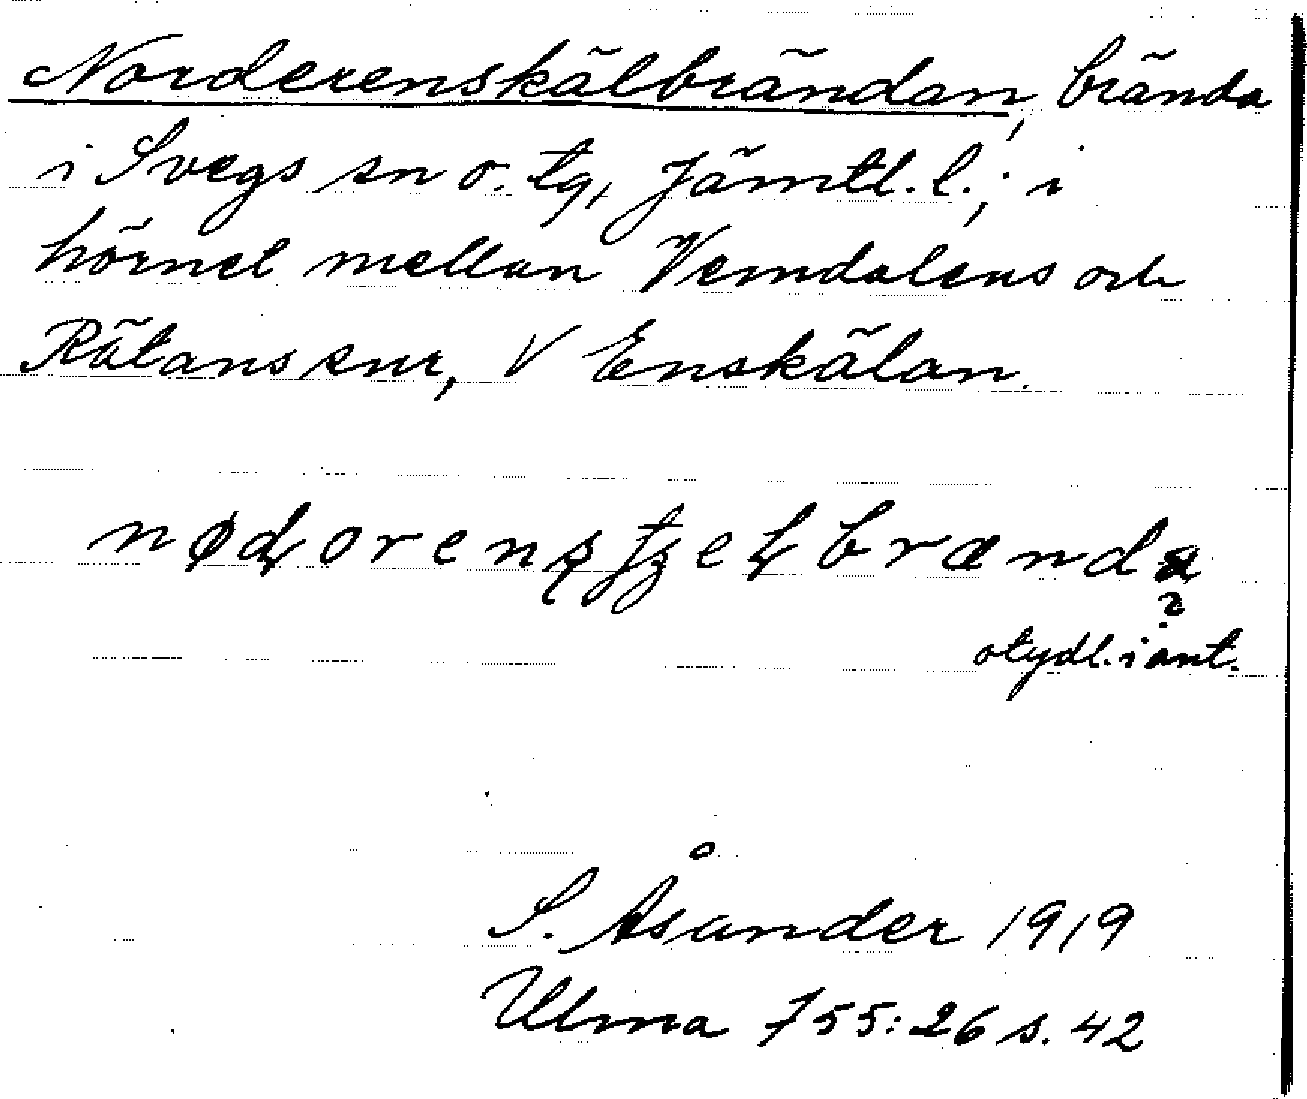 Norderenskälbrändan, brända
i Svegs sn o. tg, Jämtl. l.; i
hörnet mellan Vemdalens och
Rätans snr, V Enskälan.
?
otydl. i ant.
S. Åsander 1919
Ulma 755:26 s. 42